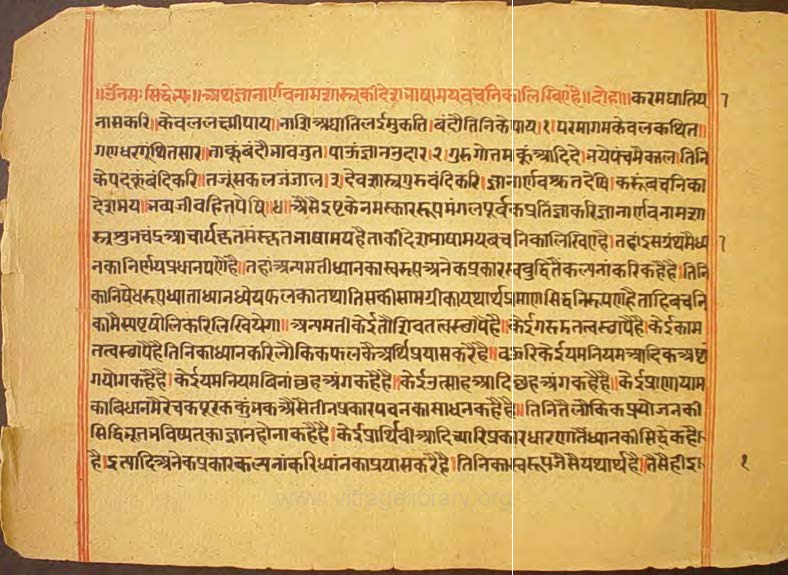 ॥ॐनमः सिद्धेभ्यः॥अथ ज्ञानार्णवनामशास्त्रकी देशभाषामय वचनिका लिखिए है॥दोहा॥करमघातिय
नासकरि॥केवललक्ष्मीपाय॥नाशि अघाति लई मुकति।बंदौ तिनिके पाय।१।परमागम केवल कथित॥
गणधर गूंथित सार॥ताकूं बंदौ भावजुत।पाऊं ज्ञान उदार।२।गुरु गोत्तमकूं आदि दे।भये पंचमे काल।तिनि
के पद कूं बंदि करि।तजूं सकल जंजाल।३।देव शास्त्र गुरु बंदि करि।ज्ञानार्णव श्रुत देषि।करूं बचनिका
देशमय॥भव्यजीवहित पेषि॥४॥असै इष्टके नमस्काररूप मंगलपूर्वक प्रतिज्ञा करि ज्ञानार्णवनाम शा
स्त्र शुभचंद्र आचार्यकृत संस्कृत भाषामय है ताकी देशभाषामय बचनिका लिखिए है।तहां इस ग्रंथमै ध्या
नका निर्णय प्रधानपणै है॥तहां अन्यमती ध्यानका स्वरूप अनेक प्रकार स्वबुद्धितै कल्पना करि कहै है।तिनि
का निषेधरूप ध्याता ध्यान ध्येय फलका तथा तिसकी सामग्रीका यथार्थ प्रमाणसिद्ध निरूपण है ताहि बचनि
कामै स्पष्ट षोलि करि लिखियेगा॥अन्यमती केई तौ शिवतत्व स्थापै है॥केई गरुडतत्व स्थापै है।केई काम
तत्व स्थापै है तिनिका ध्यान करि लौकिक फलकै अर्थि प्रयास करै है॥बहुरि केई यम नियम आदिक अष्ट
ंग योग कहै है।केई यम नियम बिनां छह अंग कहै है॥केई उत्साह आदि छह अंग कहै है॥केई प्राणायाम
का बिधानमै रेचक पूरक कुंभक असै तीन प्रकार पवनका साधन कहै है॥तिनितै लौकिक प्रयोजनकी
सिद्धि भूत भविष्यतका ज्ञान होना कहै है।केई पार्थिवी आदि च्यारि प्रकार धारणातै ध्यानकी सिद्धि कहै
है।इत्यादि अनेक प्रकार कल्पनां करि ध्यांनका प्रयास करै है।तिनिका स्वरूप जैसै यथार्थ है।तैसै ही
१
www.vitragelibrary.org